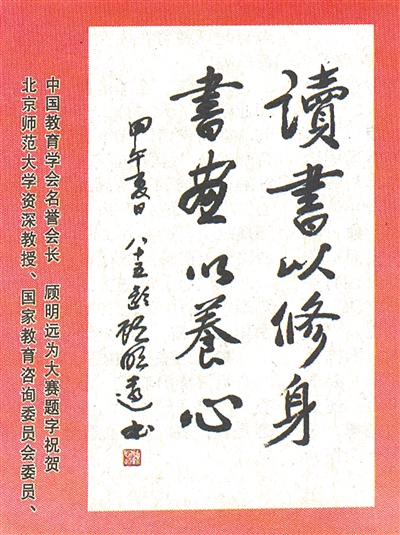 讀書以修身
書畫以養心
甲午夏日 八十五齡 顾明遠书
北京师范大学资深教授、国家教育咨询委员会委员、
中国教育学会名誉会长 顾明远为大赛题字祝贺